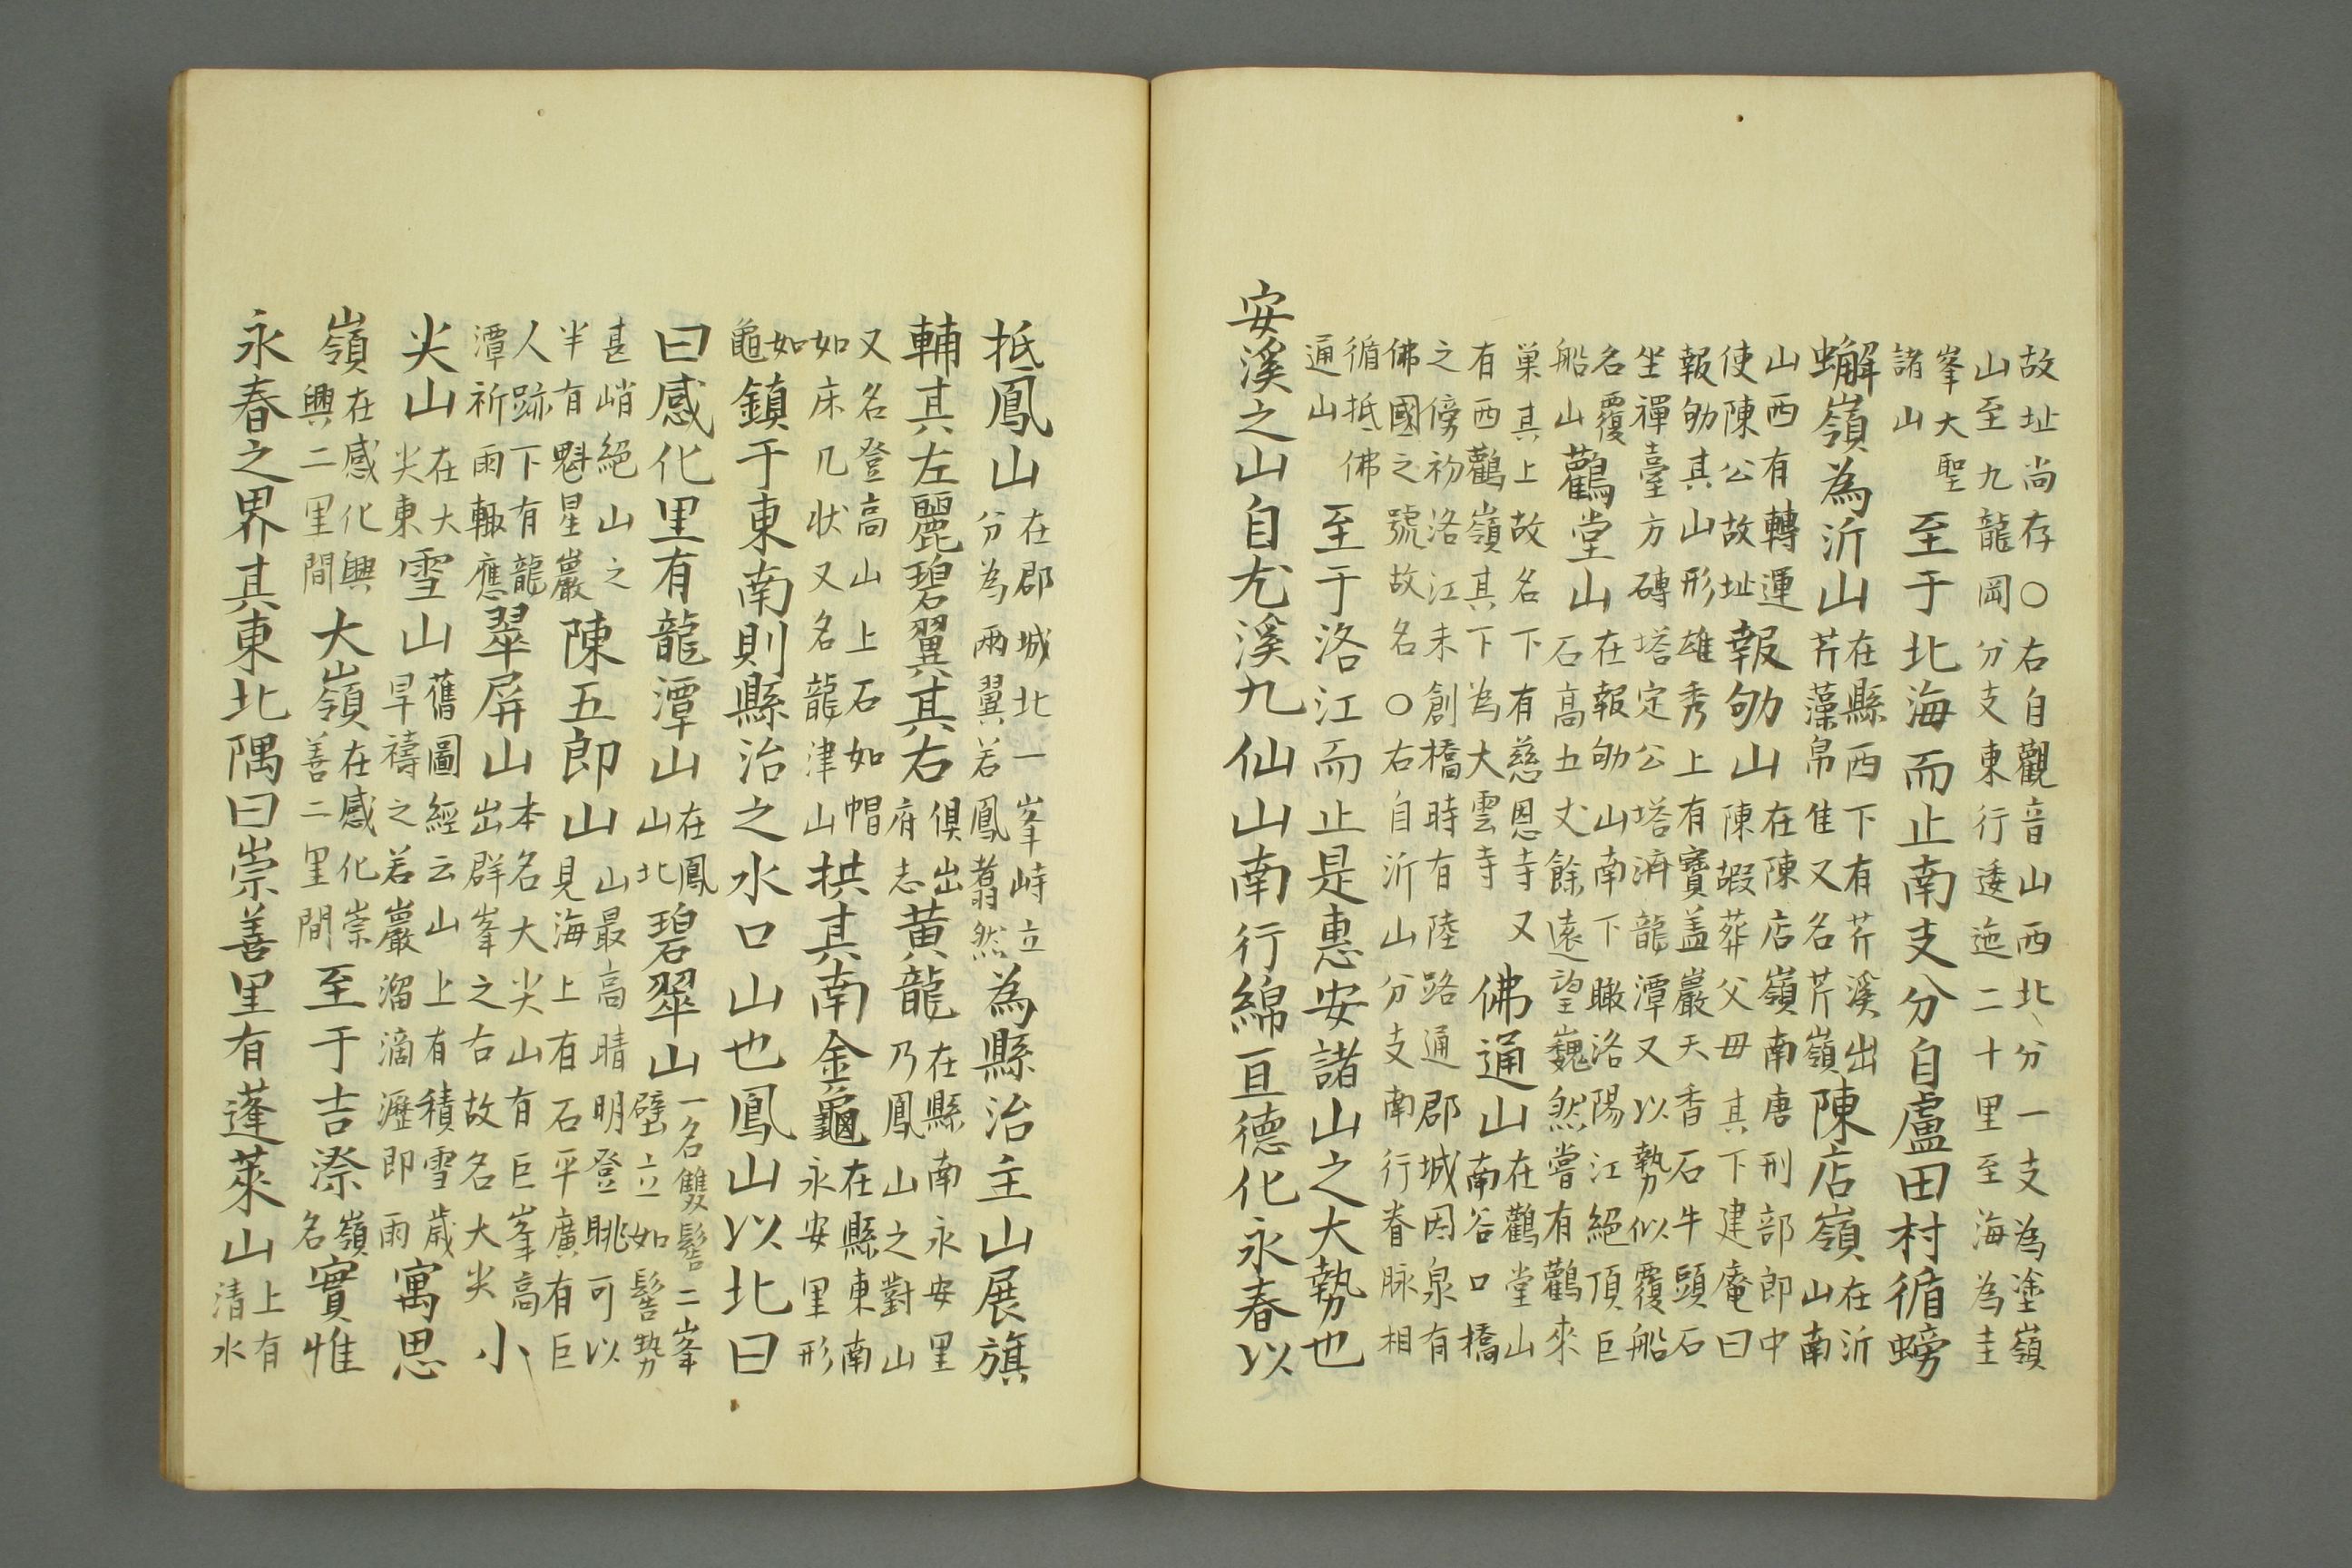 故址尚存○右自觀音山西北分一支為塗嶺
山至九龍岡分支東行逶迤二十里至海為圭
峯大聖
諸山
至于北海而止南支分自盧田村循螃
蠏嶺為沂山
在縣西下有芹溪出
芹藻帛隹又名芹嶺
陳店嶺
在沂
山南
山西有轉運
使陳公故址
報劬山
在陳店嶺南唐刑部郎中
陳嘏葬父母其下建庵曰
報劬其山形雄秀上有寶盖巖天香石牛頭石
坐禪臺方磚塔定公塔濟龍潭又以勢似覆船
名覆
船山
鸛堂山
在報劬山南下瞰洛陽江絕頂巨
石高五丈餘遠望巍然嘗有鸛來
巢其上故名下有慈恩寺又
有西鸛嶺其下為大雲寺
佛通山
在鸛堂山
南谷口橋
之傍初洛江未創橋時有陸路通郡城因泉有
佛國之號故名○右自沂山分支南行脊脉相
循抵佛
通山
至于洛江而止是惠安諸山之大勢也
安溪之山自尤溪九仙山南行綿亘德化永春以
抵鳳山
在郡城北一峯峙立
分為兩翼若鳳翥翦然
為縣治主山展旗
輔其左麗碧翼其右
俱出
府志
黃龍
在縣南永安里
乃鳳山之對山
又名登高山上石如帽
如床几状又名龍津山
拱其南金龜
在縣東南
永安里形
如
龜
鎮于東南則縣治之水口山也鳳山以北曰
曰感化里有龍潭山
在鳳
山北
碧翠山
一名雙髻二峯
壁立如髻勢
甚峭絕山之
半有魁星巖
陳五郎山
山最高晴明登眺可以
見海上有石平廣有巨
人跡下有龍
潭祈雨輒應
翠屏山
本名大尖山有巨峯高
出群峯之右故名大尖
小
尖山
在大
尖東
雪山
舊圖經云山上有積雪歲
旱禱之若巖溜滴瀝即雨
寓思
嶺
在感化興
興二里間
大嶺
在感化崇
善二里間
至于吉漈
嶺
名
實惟
永春之界其東北隅曰崇善里有蓬萊山
上有
清水